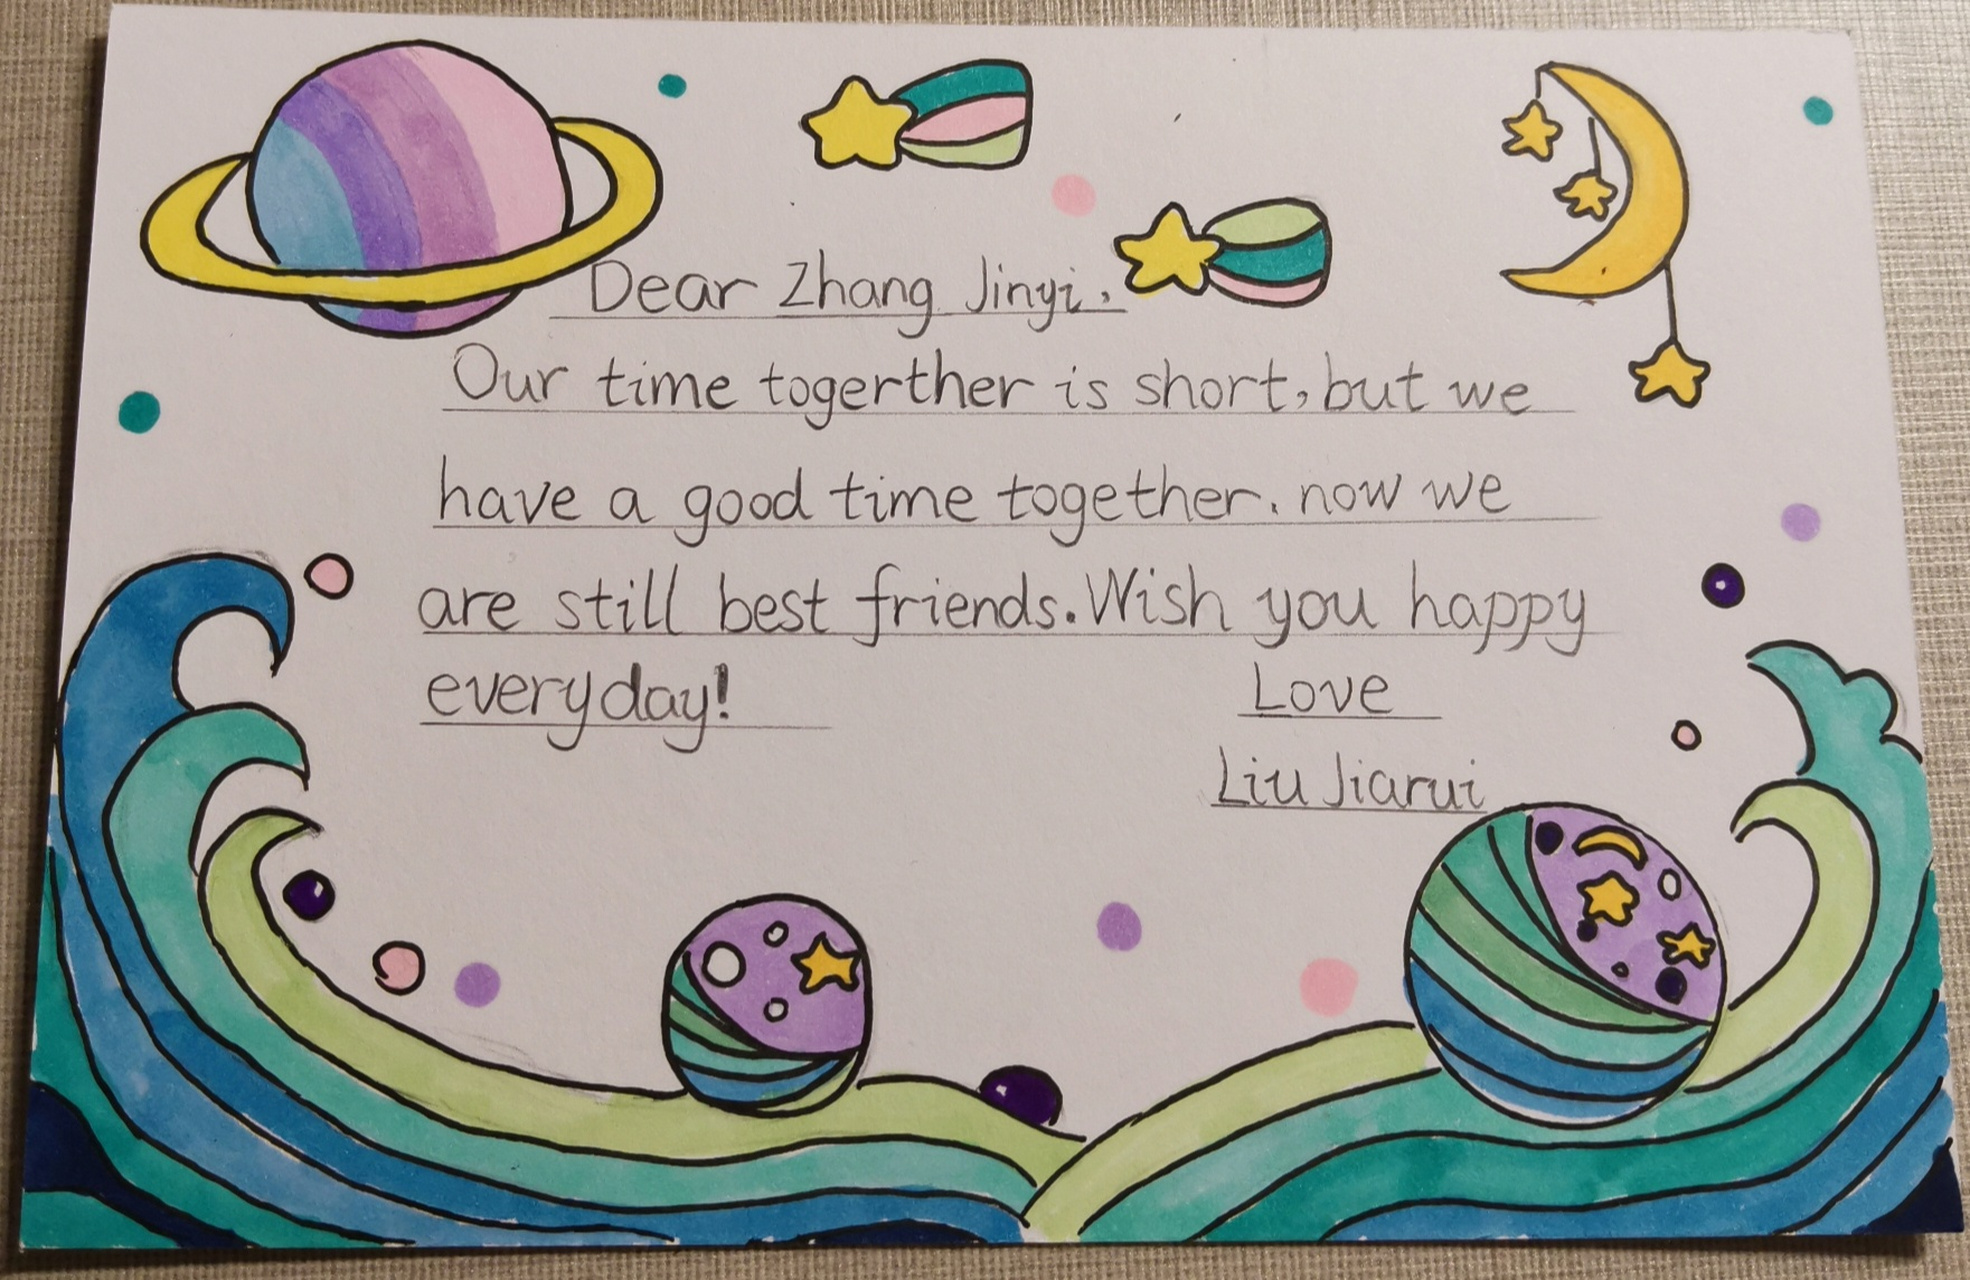 Dear Zhang Jinyi,
Our time togerther is short, but we
have a good time together. now we
are still best friends. Wish you happy
everyday!
Love
Liu Jiarui